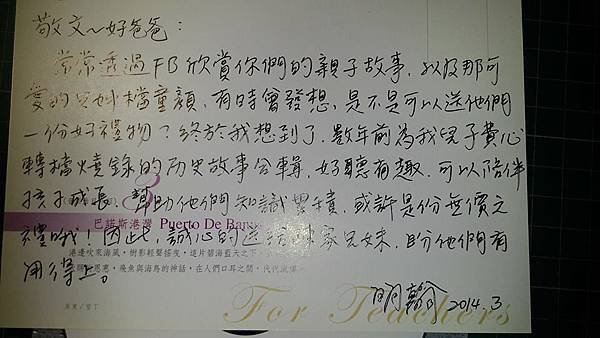 敬文~好爸爸:
常常透過FB欣賞你們的親子故事,以及那可
愛的兄妹檔童顏,有時會發想,是不是可以送他們
一份好禮物?終於我想到了,數年前為我兒子費心
轉檔燒錄的历史故事合輯,好聽有趣,可以陪伴
孩子成長,幫助他們知識累積,或許是份無價之
巴塞斯港灣 Puerto De Banus
禮哦!因此,誠心的送給陳家兄妹,盼他們有
港邊吹來海風,樹影輕聲搖曳,這片碧海藍天之下
用得上。
恩惠,飛魚與海鳥的神話,在人們口耳之間,代代流傳
明 2014.3
For Teachers